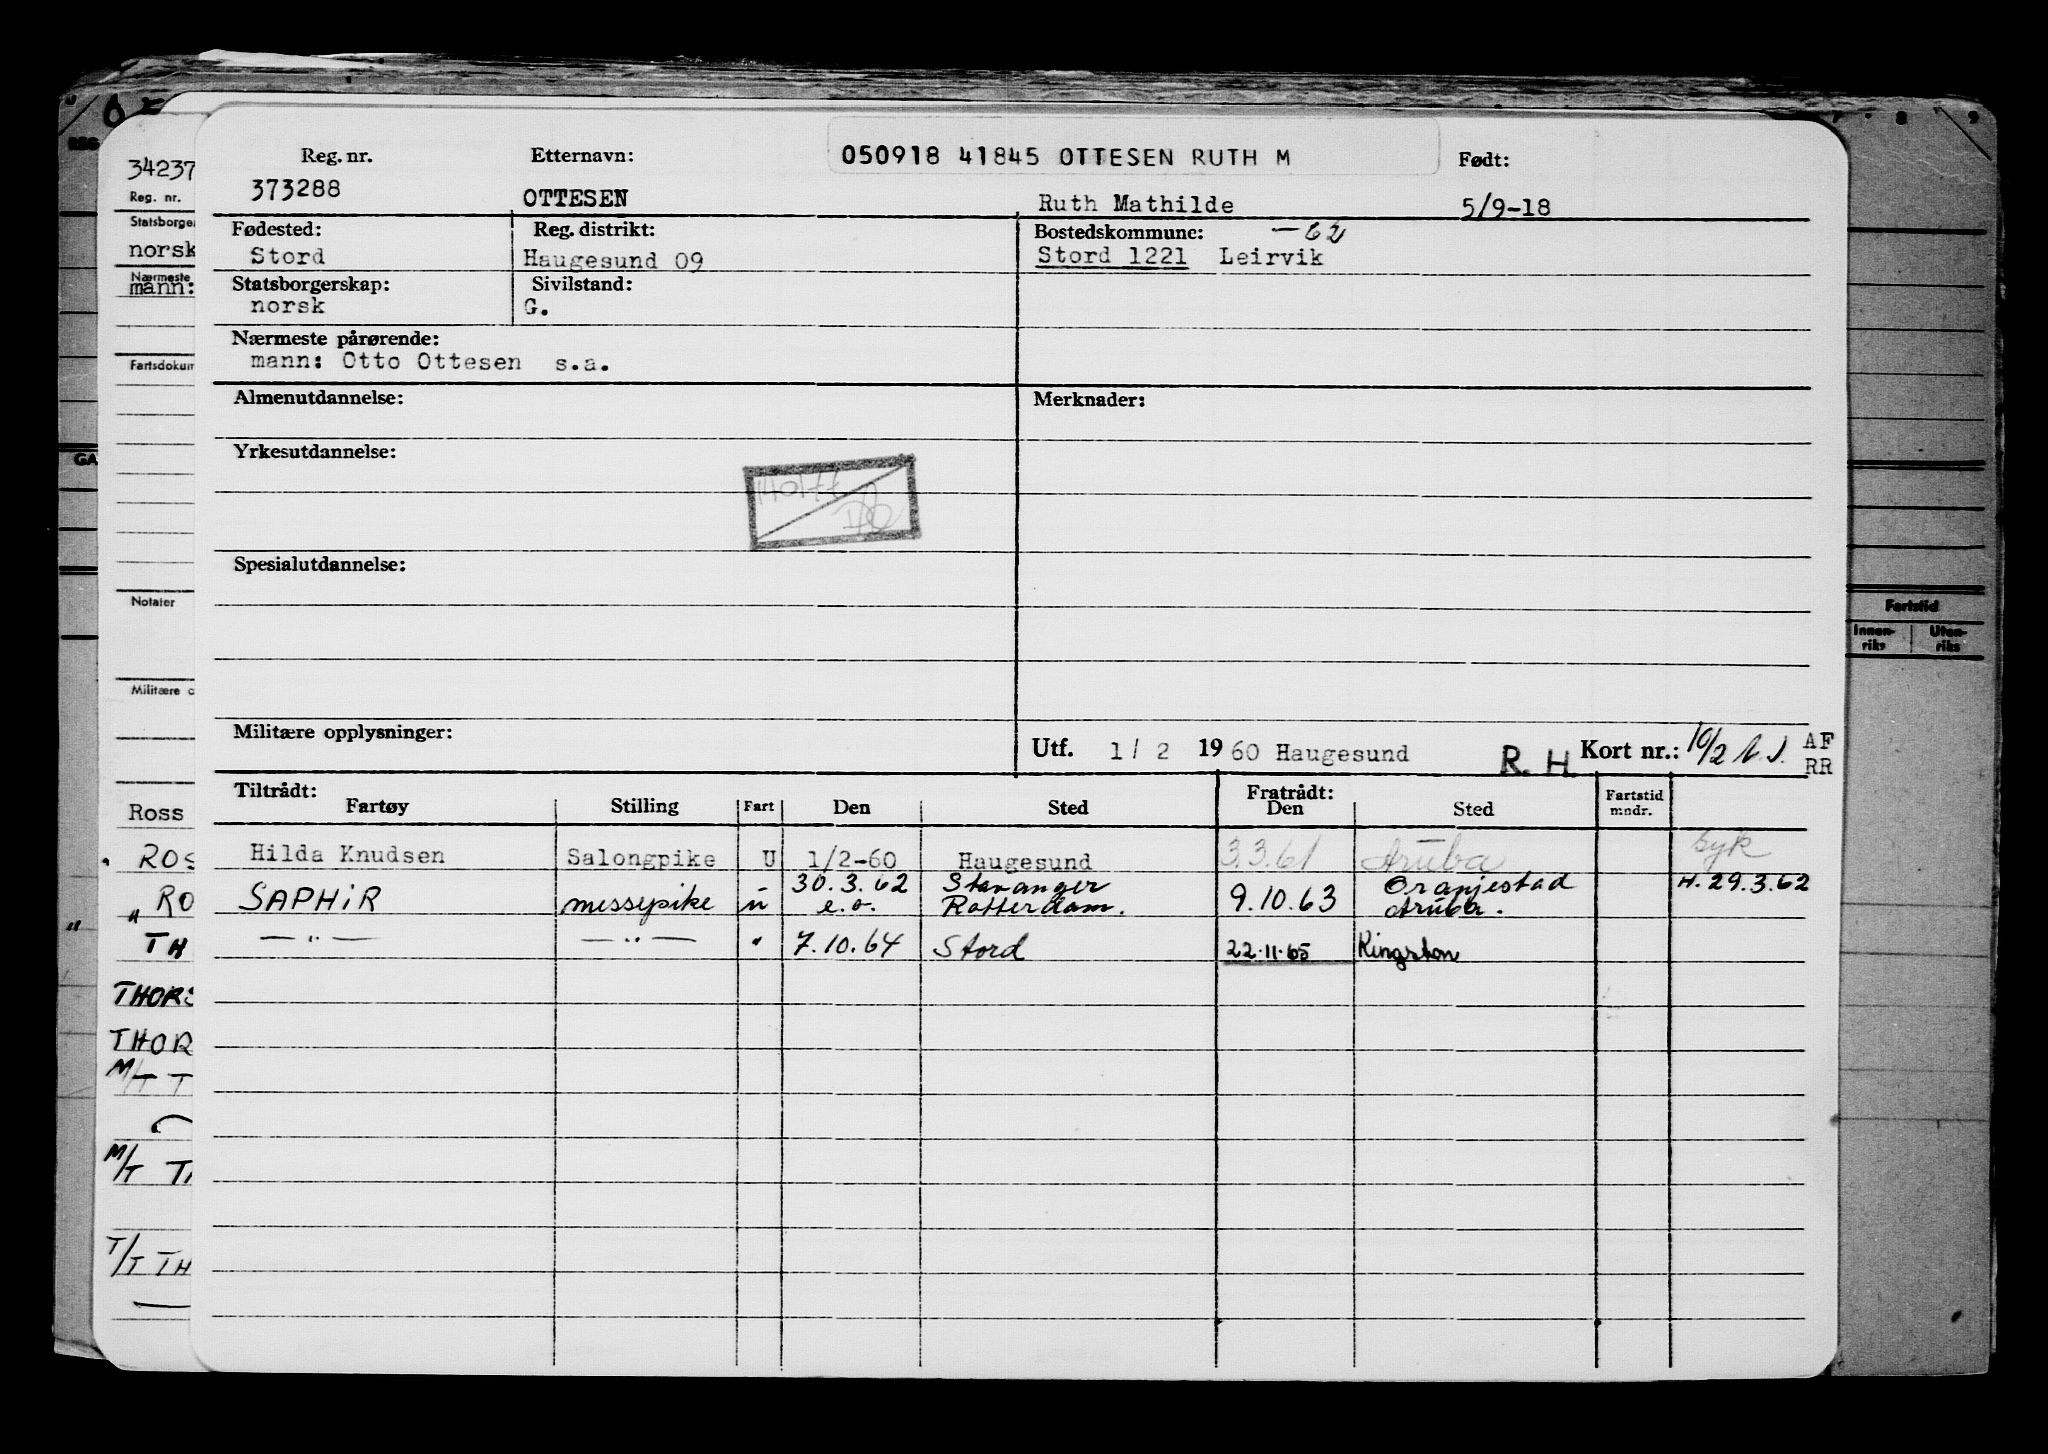 34237
Reg. nr.
Statsborger
norsk
Nærmeste
mann:
Fartsdokum
Notater
Militære o
Ross
ROS
" RO
TH
THORS
THOR
M/T T
M/T TH
T/T TH
GA
8 9
Fartstid
Innen-riks Uten-riks
050918 41845 OTTESEN RUTH M
Reg. nr. Etternavn: Født:
373288 OTTESEN Ruth Mathilde 5/9-18
Fødested: Reg. distrikt: Bostedskommune: -62
Stord Haugesund 09 Stord 1221 Leirvik
Statsborgerskap: Sivilstand:
norsk G.
Nærmeste pårørende:
mann: Otto Ottesen s.a.
Almenutdannelse: Merknader:
Yrkesutdannelse:
Spesialutdannelse:
Militære opplysninger:
Utf. 1/2 1960 Haugesund R.H. Kort nr.: 10/2 AF
RR
Tiltrådt: Fratrådt:
Fartøy Stilling Fart Den Sted Den Sted Fartstid mndr.
Hilda Knudsen Salongpike U 1/2-60 Haugesund 3.3.61 Aruba syk
SAPHIR messepike u 30.3.62 Stavanger 9.10.63 Oranjestad H. 29.3.62
e.o. Rotterdam. Aruba.
— " — — " — " 7.10.64 Stord 22.11.65 Kingston